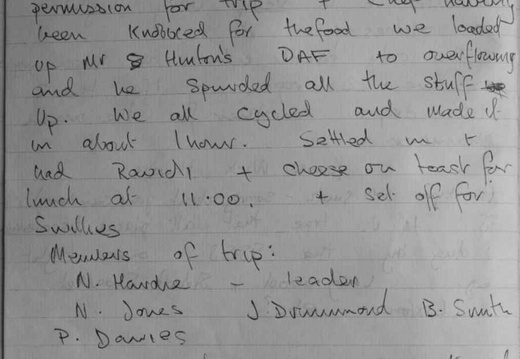 permission for trip + Chef having
been Knobbled for thefood we loaded
up Mr Hinton's DAF to overflowing
and he Spurded all the stuff
Up. We all cycled and made it
in about 1 hour. Settled in +
had Ravioli + cheese on toast for
lunch at 11:00 + set off for
Swillies
Members of trip:
N. Hardie - leader
N. Jones J. Drummond B. Smith
P. Davies